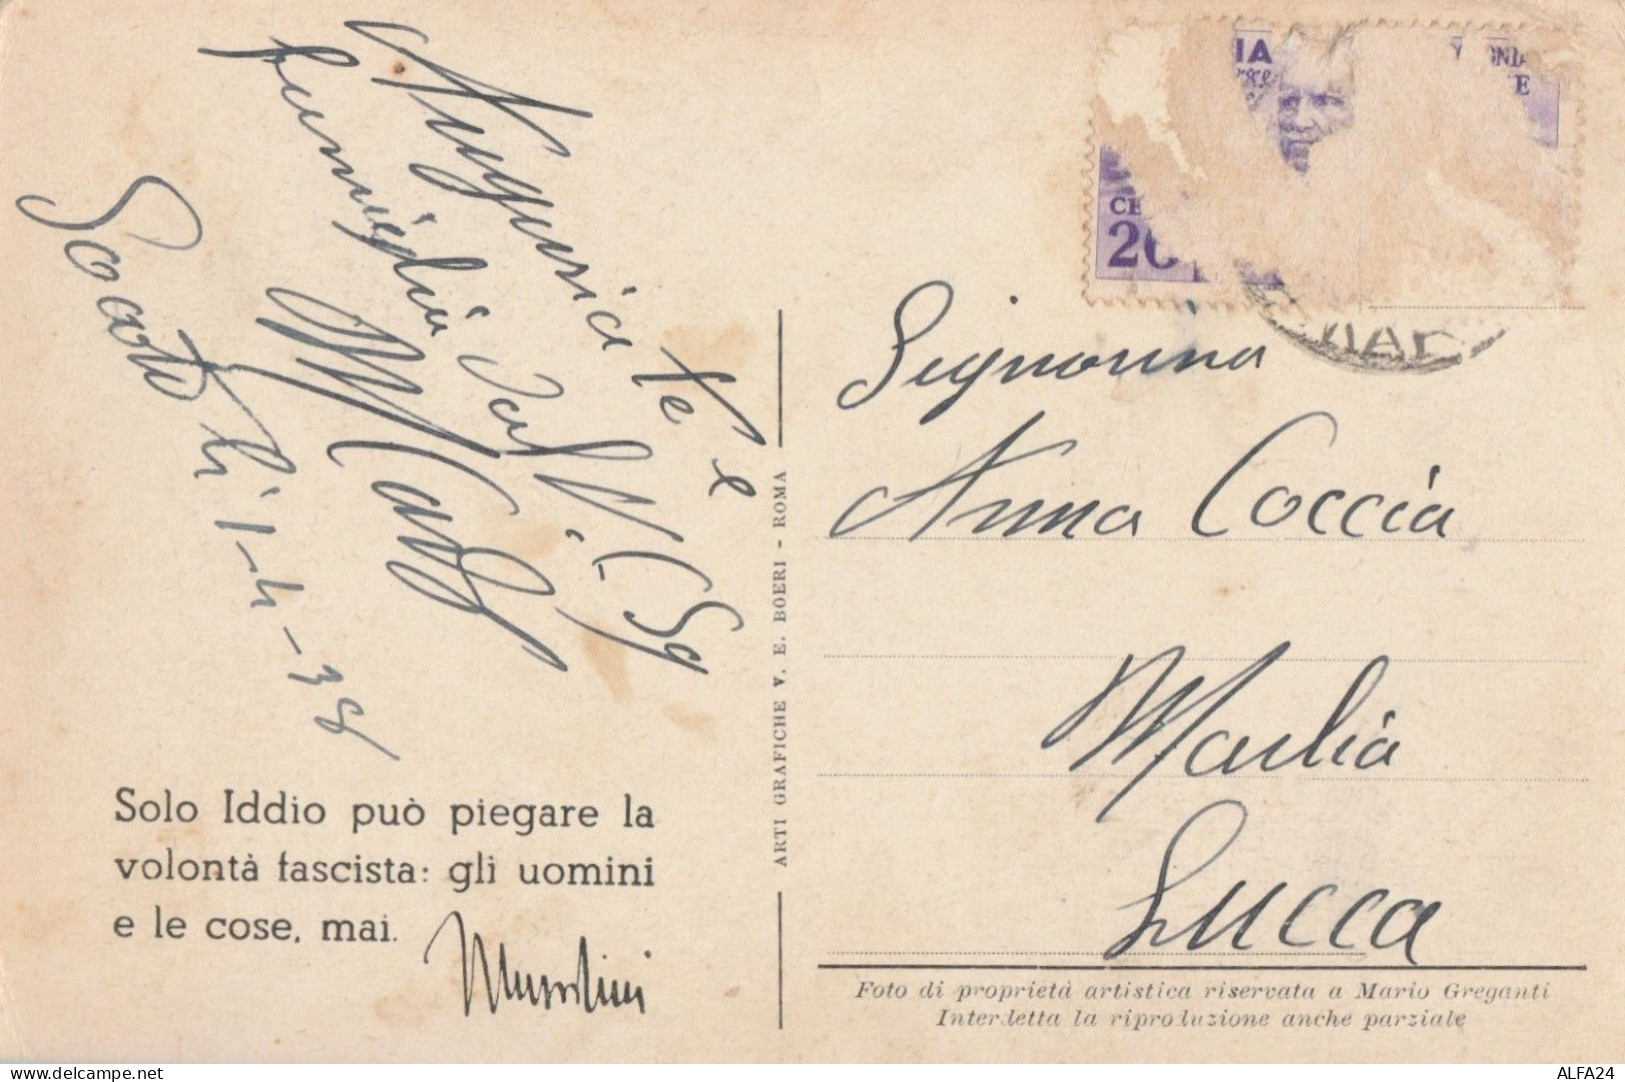 Auguri a te e
famiglia dal V. C. Sq
M Carli
Soatto li 1-4-38
Solo Iddio può piegare la
volontà fascista: gli uomini
e le cose, mai.
Mussolini
ARTI GRAFICHE V. E. BOERI - ROMA
IA
CE
20
E
Signorina
Anna Coccia
Marlia
Lucca
Foto di proprietà artistica riservata a Mario Greganti
Interdetta la riproduzione anche parziale
delcampe.net
ALFA24